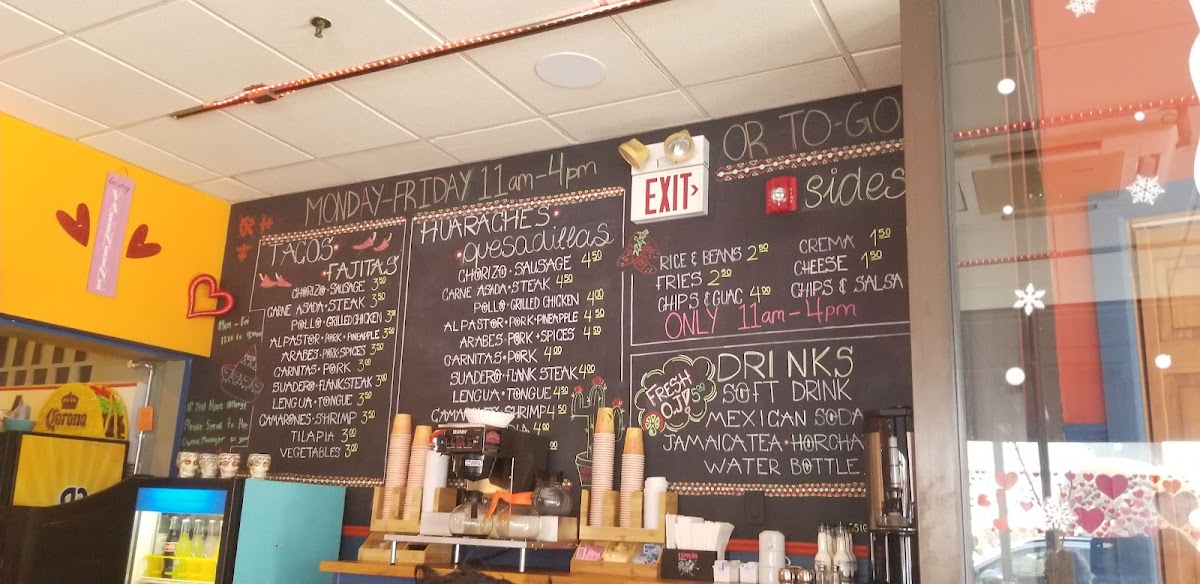 MONDAY-FRIDAY 11am-4pm
OR TO-GO
TACOS
FAJITAS
CHORIZO·SAUSAGE 3.50
CARNE ASADA·STEAK 3.50
POLLO·GRILLED CHICKEN 3.00
ALPASTOR·PORK·PINEAPPLE 3.50
ARABES·PORK·SPICES 3.50
CARNITAS·PORK 3.00
SUADERO·FLANKSTEAK 3.50
LENGUA·TONGUE 3.50
CAMARONES·SHRIMP 3.50
TILAPIA 3.00
VEGETABLES 3.00
HUARACHES
quesadillas
CHORIZO·SAUSAGE 4.50
CARNE ASADA·STEAK 4.50
POLLO·GRILLED CHICKEN 4.00
ALPASTOR·PORK·PINEAPPLE 4.50
ARABES·PORK·SPICES 4.50
CARNITAS·PORK 4.00
SUADERO·FLANK STEAK 4.00
LENGUA·TONGUE 4.50
SHRIMP 4.50
4.00
EXIT
sides
RICE & BEANS 2.50
FRIES 2.50
CHIPS & GUAC 4.00
CREMA 1.50
CHEESE 1.50
CHIPS & SALSA
ONLY 11am-4pm
FRESH
O.J!
DRINKS
SOFT DRINK
MEXICAN SODA
JAMAICA TEA·HORCHA
WATER BOTTLE
be my
VALENTINE
Mon-Fri
Corona
BUNN